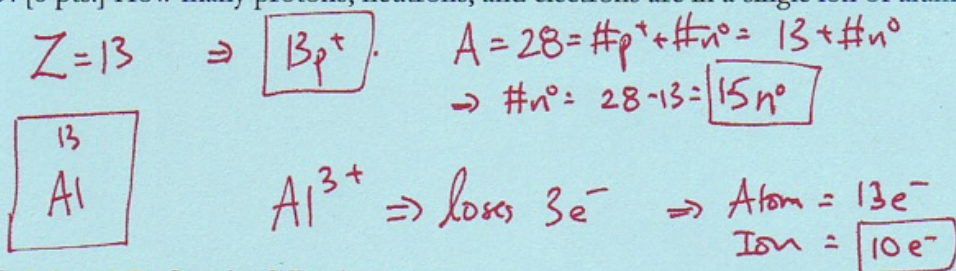 Z = 13 ⇒ 13p⁺. A = 28 = #p⁺ + #n⁰ = 13 + #n⁰
→ #n⁰ = 28 - 13 = 15n⁰
13
Al
Al³⁺ ⇒ loses 3e⁻ ⇒ Atom = 13e⁻
Ion = 10e⁻